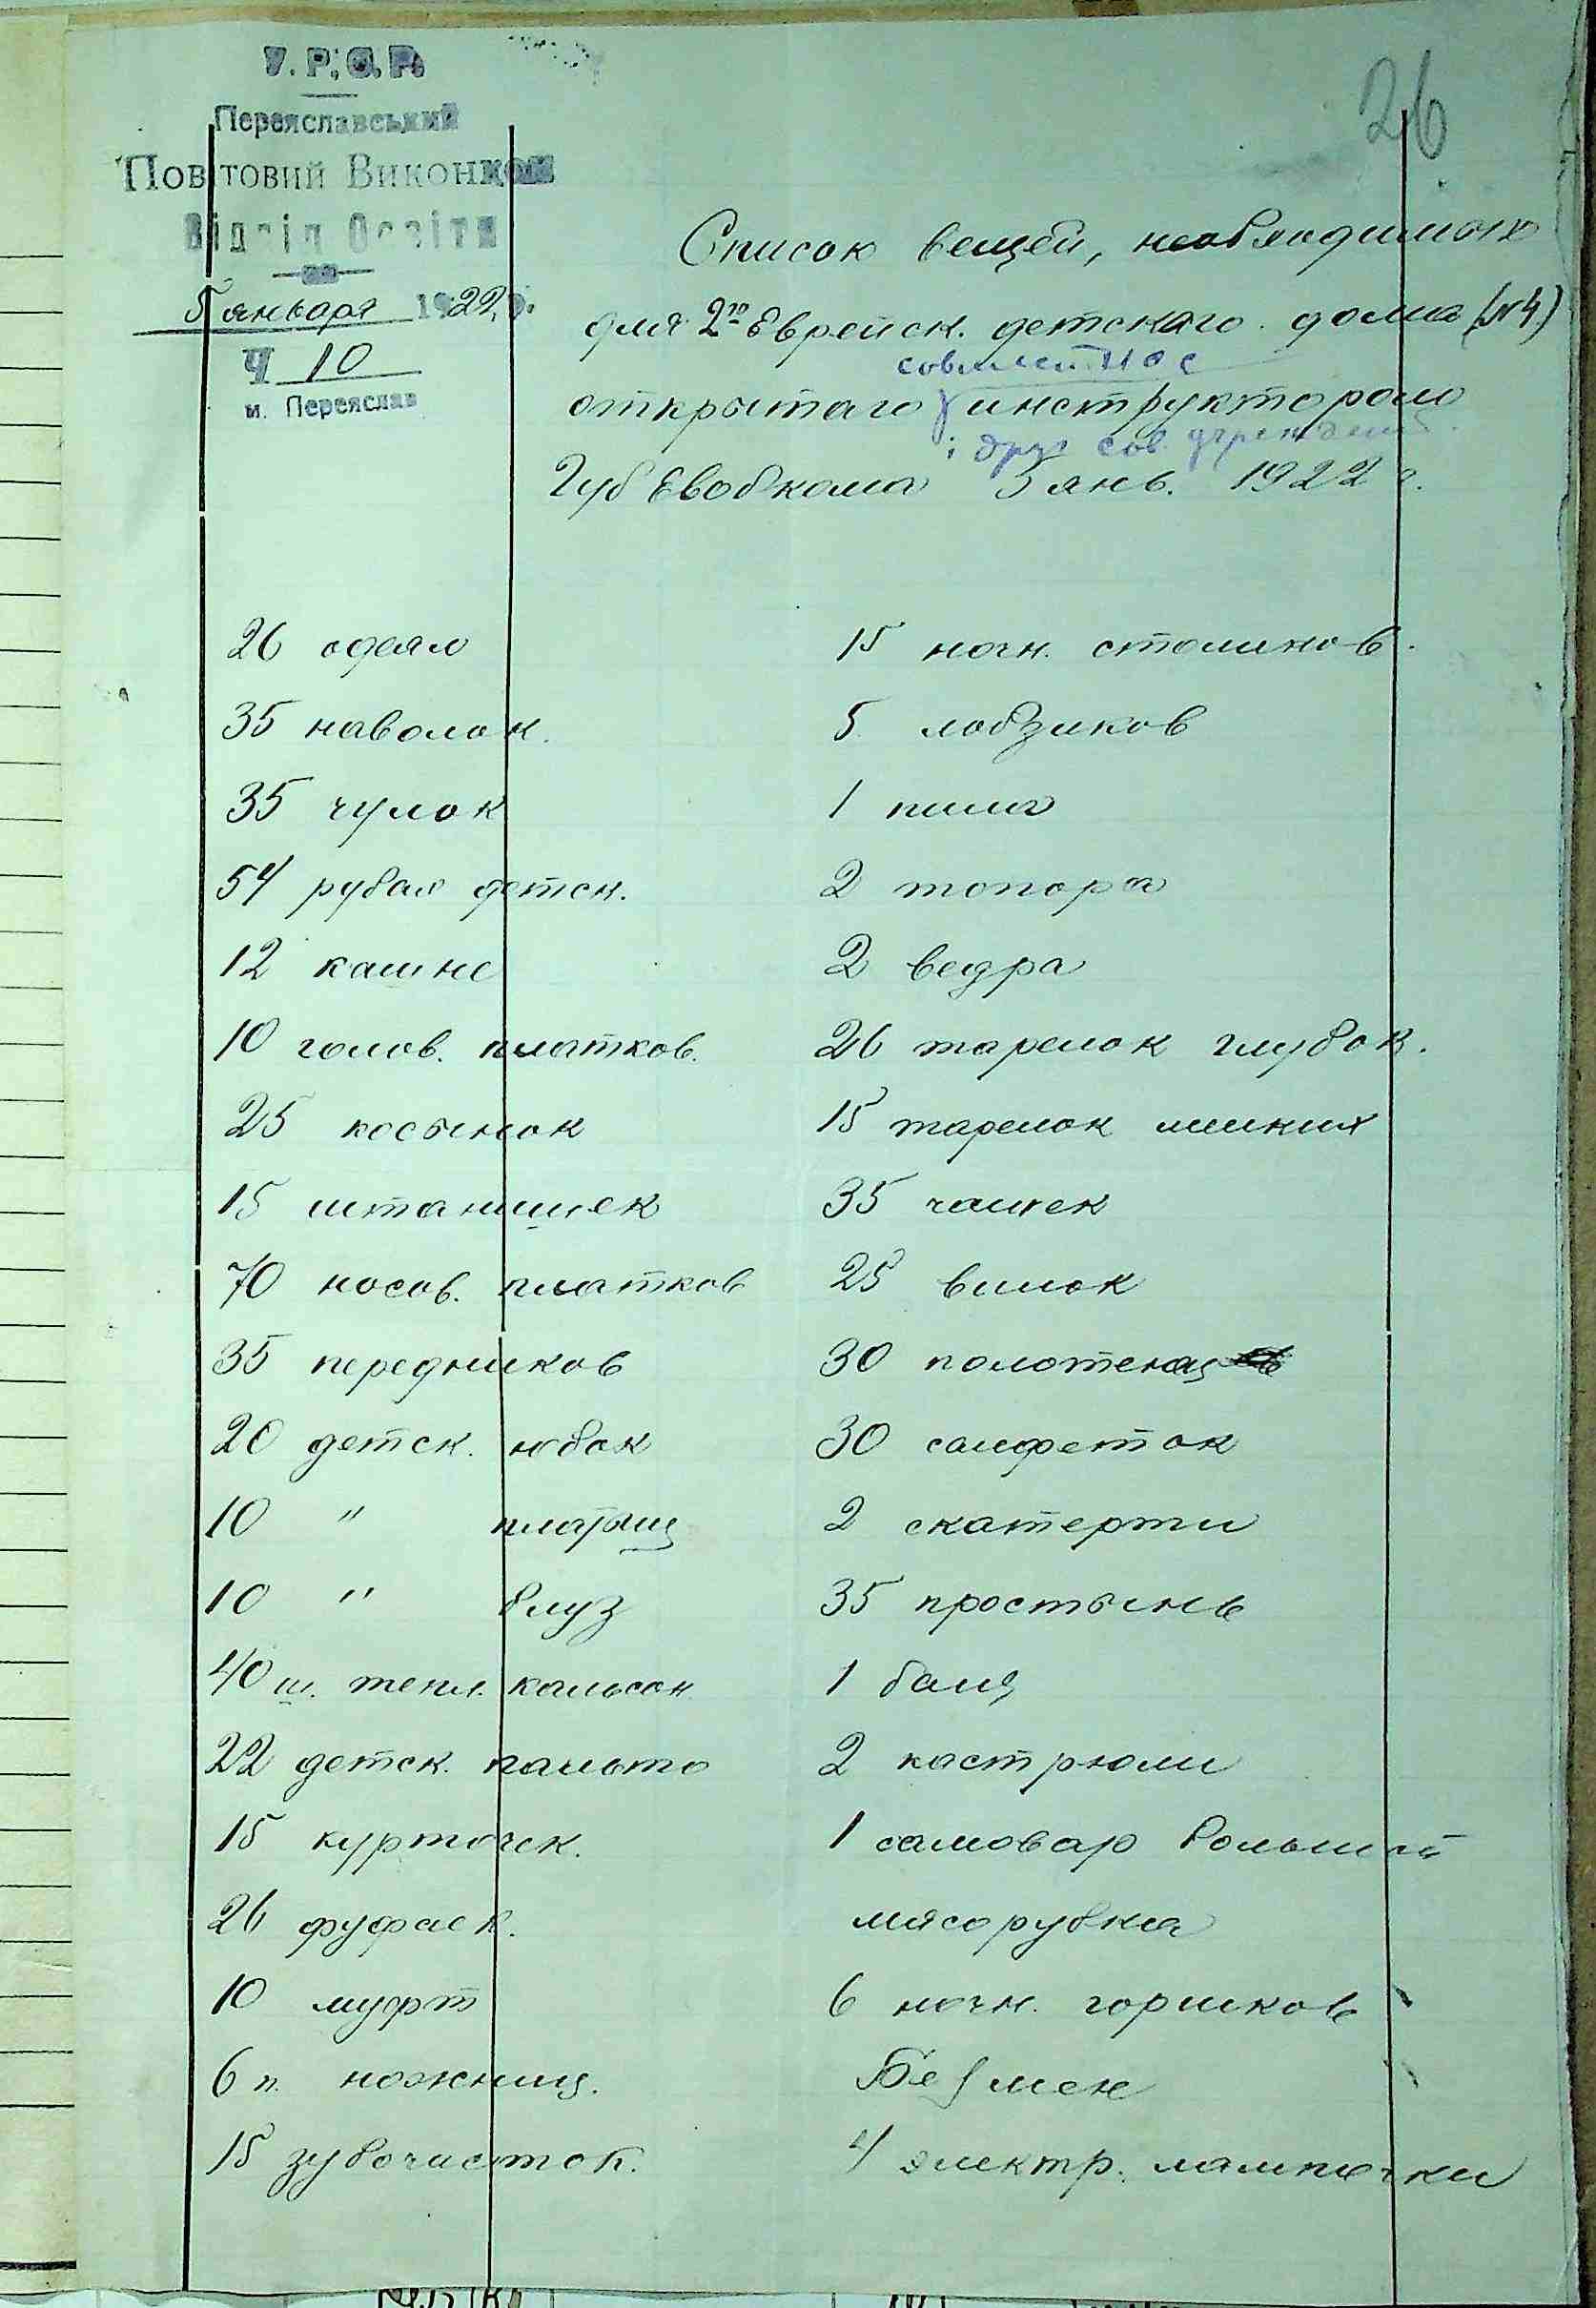 У.Р.С.Р.
Переяславський
Повітовий Виконком
Відділ Освіти
5 января 1922 р.
Ч 10
м. Переяслав
26
Список вещей, необходимых
для 2го Еврейск. детскаго дома (№4)
совместно с
открытаго инструктором
і друг сов. учрежден.
Губ Евобкома 5 янв. 1922 г.
26 одеял
35 наволок.
35 чулок
54 рубах детск.
12 кашне
10 голов. платков.
25 косынок
15 штанишек
70 носов. платков
35 передников
20 детск. юбок
10 " платьиц
10 " блуз
40 ш. тепл. кальсон
22 детск. пальто
15 курточек.
26 фуфаек.
10 муфт
6 п. ножниц.
15 зубочисток.
15 ночн. столиков.
5 лобзиков
1 пила
2 топора
2 ведра
26 тарелок глубок.
15 тарелок мелких
35 чашек
25 вилок
30 полотенец
30 салфеток
2 скатерти
35 простынь
1 балия
2 кастрюли
1 самовар большой
мясорубка
6 ночн. горшков
Безмен
4 электр. лампочки